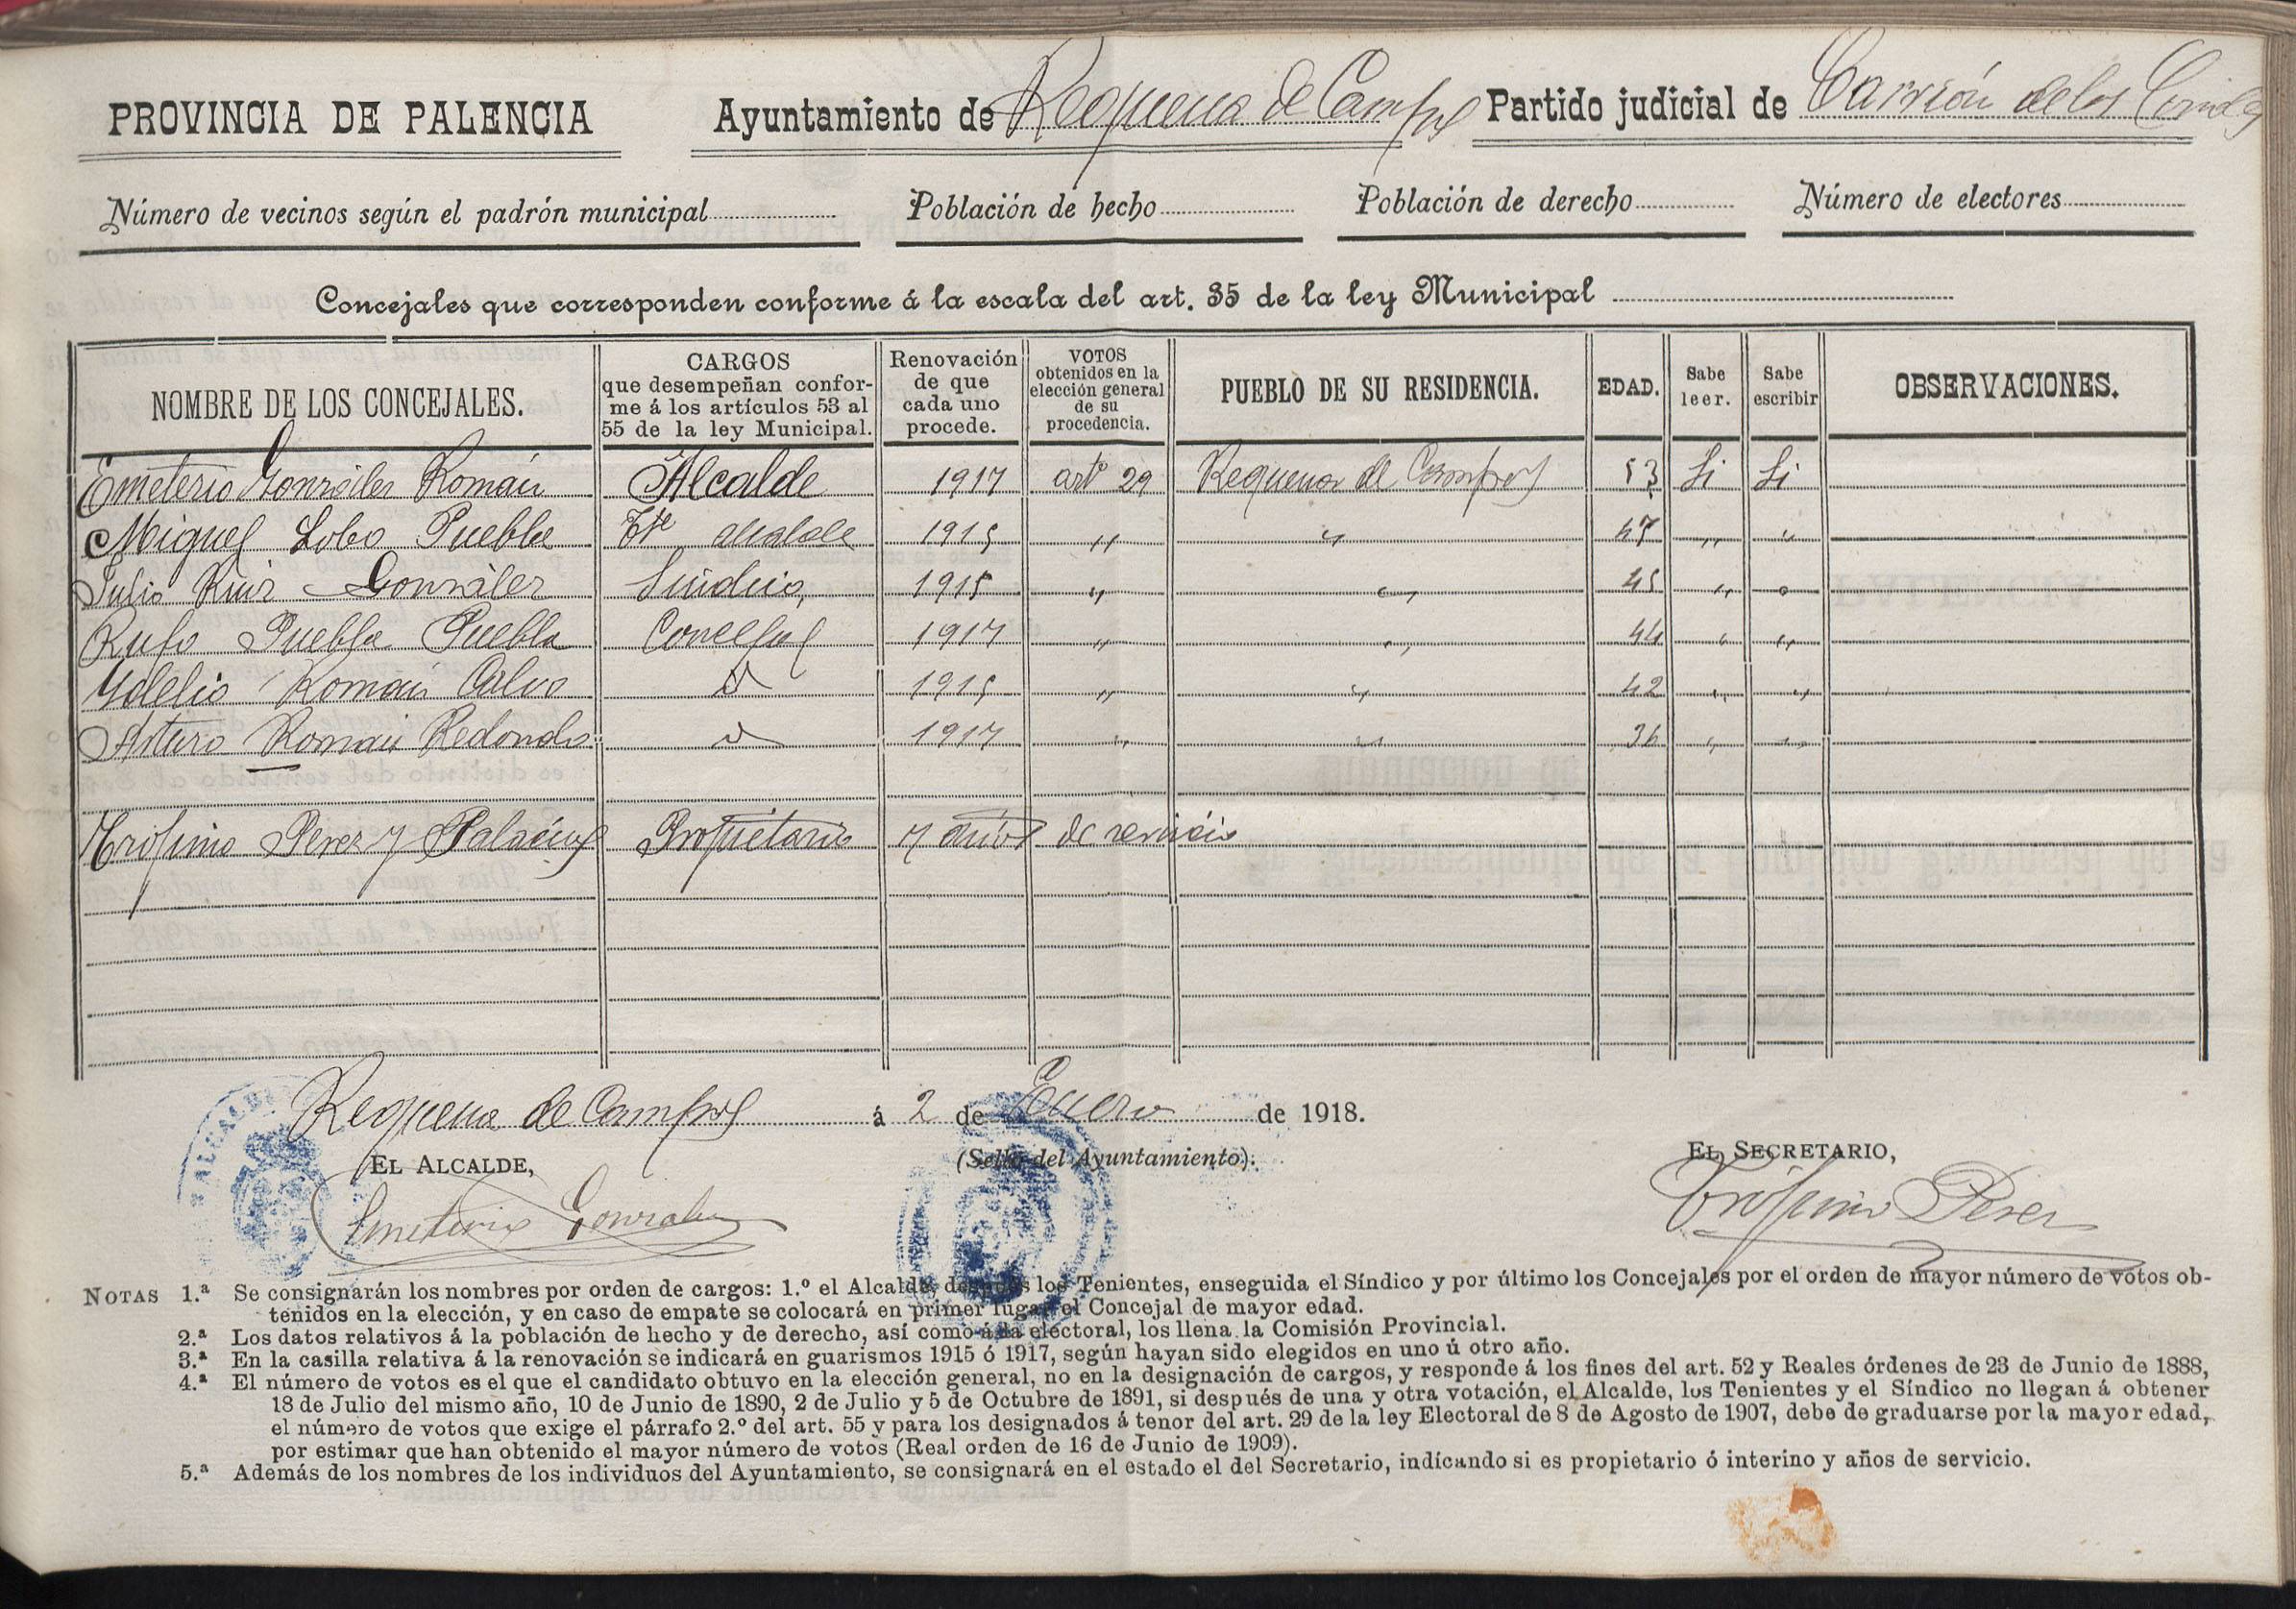 PROVINCIA DE PALENCIA Ayuntamiento de Requena de Campos Partido judicial de Carrión de los Condes
Número de vecinos según el padrón municipal Población de hecho Población de derecho Número de electores
Concejales que corresponden conforme á la escala del art. 35 de la ley Municipal
NOMBRE DE LOS CONCEJALES. CARGOS que desempeñan conforme á los artículos 53 al 55 de la ley Municipal. Renovación de que cada uno procede. VOTOS obtenidos en la elección general de su procedencia. PUEBLO DE SU RESIDENCIA. EDAD. Sabe leer. Sabe escribir OBSERVACIONES.
Emeterio González Román Alcalde 1917 artº 29 Requena de Campos 53 Si Si
Miguel Lobo Puebla Tte alcalde 1915 " " 47 " "
Julio Ruiz González Síndico, 1915 " " 45 " "
Rufo Puebla Puebla Concejal 1917 " " 44 " "
Román Calvo 1915 " " 42 " "
Arturo Roman Redondo 1917 " " 36 " "
Trofimo Perez y Palacios Propietario 7 años de servicio
Requena de Campos á 2 de Enero de 1918.
EL ALCALDE, (Sello del Ayuntamiento). EL SECRETARIO,
ALCALDIA
Emeterio Gonzalez Trofimo Perez
NOTAS 1.ª Se consignarán los nombres por orden de cargos: 1.º el Alcalde, después los Tenientes, enseguida el Síndico y por último los Concejales por el orden de mayor número de votos ob-
tenidos en la elección, y en caso de empate se colocará en primer lugar el Concejal de mayor edad.
2.ª Los datos relativos á la población de hecho y de derecho, así como á la electoral, los llena la Comisión Provincial.
3.ª En la casilla relativa á la renovación se indicará en guarismos 1915 ó 1917, según hayan sido elegidos en uno ú otro año.
4.ª El número de votos es el que el candidato obtuvo en la elección general, no en la designación de cargos, y responde á los fines del art. 52 y Reales órdenes de 23 de Junio de 1888,
18 de Julio del mismo año, 10 de Junio de 1890, 2 de Julio y 5 de Octubre de 1891, si después de una y otra votación, el Alcalde, los Tenientes y el Síndico no llegan á obtener
el número de votos que exige el párrafo 2.º del art. 55 y para los designados á tenor del art. 29 de la ley Electoral de 8 de Agosto de 1907, debe de graduarse por la mayor edad,
por estimar que han obtenido el mayor número de votos (Real orden de 16 de Junio de 1909).
5.ª Además de los nombres de los individuos del Ayuntamiento, se consignará en el estado el del Secretario, indicando si es propietario ó interino y años de servicio.